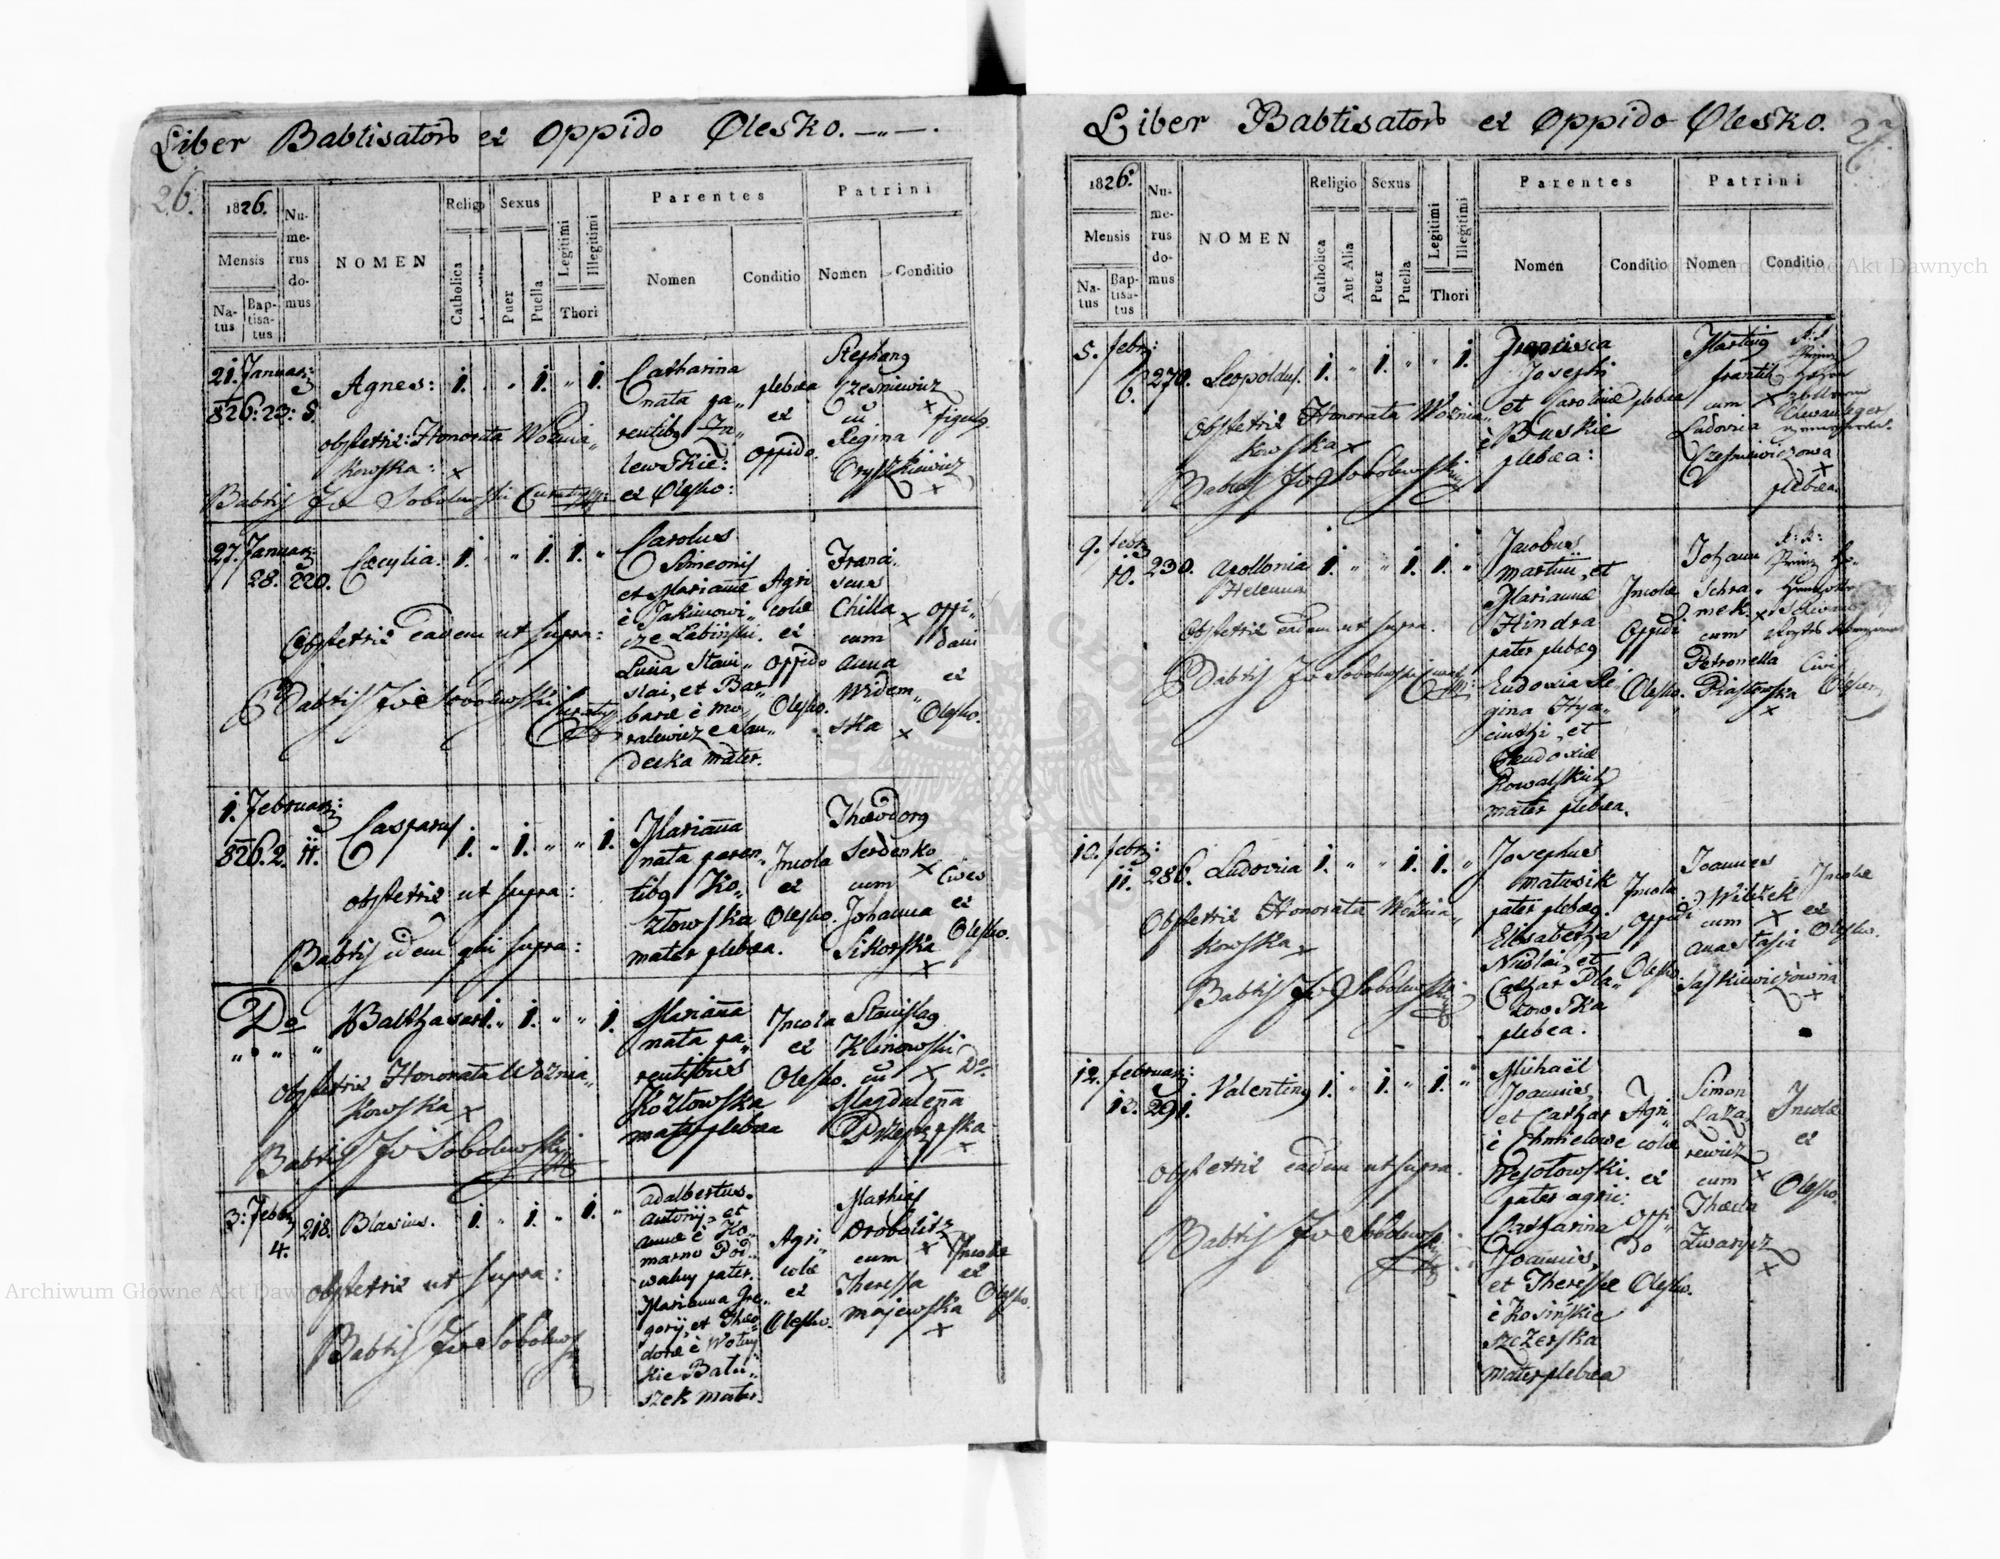 Liber Babtisator ex Oppido Olesko. —„—.
26.
1826.
Mensis
Na-
tus
Bap-
tisa-
tus
Nu-
me-
rus
do-
mus
NOMEN
Religio
Catholica
Sexus
Puer
Puella
Legitimi
Illegitimi
Thori
Parentes
Nomen
Conditio
Patrini
Nomen
Conditio
21. Januar:
826: 23: 5.
Agnes:
1. „ „ 1. „ 1.
obstetrix: Honorata Woźnia„
kowska: x
Babtis Jv Sobolewski
Catharina
nata pa„
rentibg Za„
lewskie:
ex Olesko:
plebea
ex
oppido.
Stephang
Czesniewicz
x
cū
Regina
Oryszkiewicz
x
figulg
27. Januar:
28. 220.
Cæcylia.
1. „ „ 1. 1. „
Obstetrix eadem ut supra:
Babtis Jv Sobolewski
Carolus
Simeonis
et Mariannæ
è Jakimowi„
cze Labiński.
Luda Stani„
slai, et Bar„
baræ è Mo„
ralewicz
mater.
Agri
colæ
ex
oppido
Olesko.
Franci„
scus
Chilla x
cum
anna
Widem„
ska x
oppi„
dani
ex
Olesko.
1. Februar:
826. 2. 11.
Casparus
1. „ 1. „ „ 1.
obstetrix ut supra:
Babtis idem qui supra:
Marianna
nata paren„
tibg Ko„
złowska
mater plebea.
Incola
ex
Olesko.
Theodorg
Serdenko
x
cum
Johanna
Sikorska
x
Cives
ex
Olesko.
Do
„ „ „
Balthasar
1. „ 1. „ „ 1.
obstetrix Honorata Woźnia„
kowska x
Babtis Jv Sobolewski
Marianna
nata pa„
rentibus
Kozłowska
mater plebea
Incola
ex
Olesko.
Stanislag
Klinowski
cū x
Magdalena
x
Do.
3. Febr:
4.
218.
Blasius.
1. „ 1. „ 1. „
obstetrix ut supra:
Babtis Jv Sobolews
Adalbertus.
Antonij, et
annæ è Ko„
marno Pod„
walny pater.
Marianna Gre„
gorij, et Theo„
doræ è
kie Batu„
szek mater.
Agri
colæ
ex
Olesko.
Mathias
Drobalitz
cum x
Theressa
Majewska
x
Incolæ
ex
Olesko.
Liber Babtisator ex Oppido Olesko.
27.
1826.
Mensis
Na-
tus
Bap-
tisa-
tus
Nu-
me-
rus
do-
mus
NOMEN
Religio
Catholica
Aut Alia
Sexus
Puer
Puella
Legitimi
Illegitimi
Thori
Parentes
Nomen
Conditio
Patrini
Nomen
Conditio
5. febr:
6. 270.
Leopoldus.
1. „ 1. „ „ 1.
Obstetrix Honorata Woźnia„
kowska x
Babtis Jv Sobolewski
Francisca
Josephi
et Carolinæ
è Buskie
plebea:
plebea
Marting
frantik
cum x
Ludovica
Czesniewiczowa
x
plebea.
9. febr:
10. 230.
Apollonia
Helenna
1. „ „ 1. 1. „
Obstetrix eadem ut supra.
Babtis Jv Sobolewski
Jacobus
martini, et
Mariannæ
Hindra
pater plebeg
Eudoxia Re„
gina Hya„
cinthi, et
Eudoxiæ
Kowalskich
mater plebea.
Incolæ
Oppidi
Olesko.
Johann
Schra„
mek. x
cum
Petronella
Piastowska
x
10. febr:
11. 286.
Ludovica
1. „ „ 1. 1. „
Obstetrix Honorata Woźnia„
kowska x
Babtis Jv Sobolewski
Josephus
matusik
pater plebeg.
Elisabetha
Nicolai, et
Cathar Pla„
zowska
plebea.
Incola
Oppidi
Olesko.
Joannes
Wilczek
cum x
anastasia
Saskiewiczowna
x
Incolæ
ex
Olesko.
12. februar:
13. 291.
Valenting
1. „ 1. „ 1. „
obstetrix eadem ut supra.
Babtis Jv Sobolewski
Michaël
Joannis,
et Cathar
è Chmielowe
Wesołowski.
pater agric:
Catharina
Joannis,
et Theressæ
è Kosińskie
szczerska
mater plebea
Agri„
colæ
ex
oppi„
do
Olesko.
Simon
Laza„
rewicz
cum x
Thecla
Zwarycz
x
Incolæ
ex
Olesko.
Archiwum Główne Akt Dawnych
Archiwum Główne Akt Dawnych